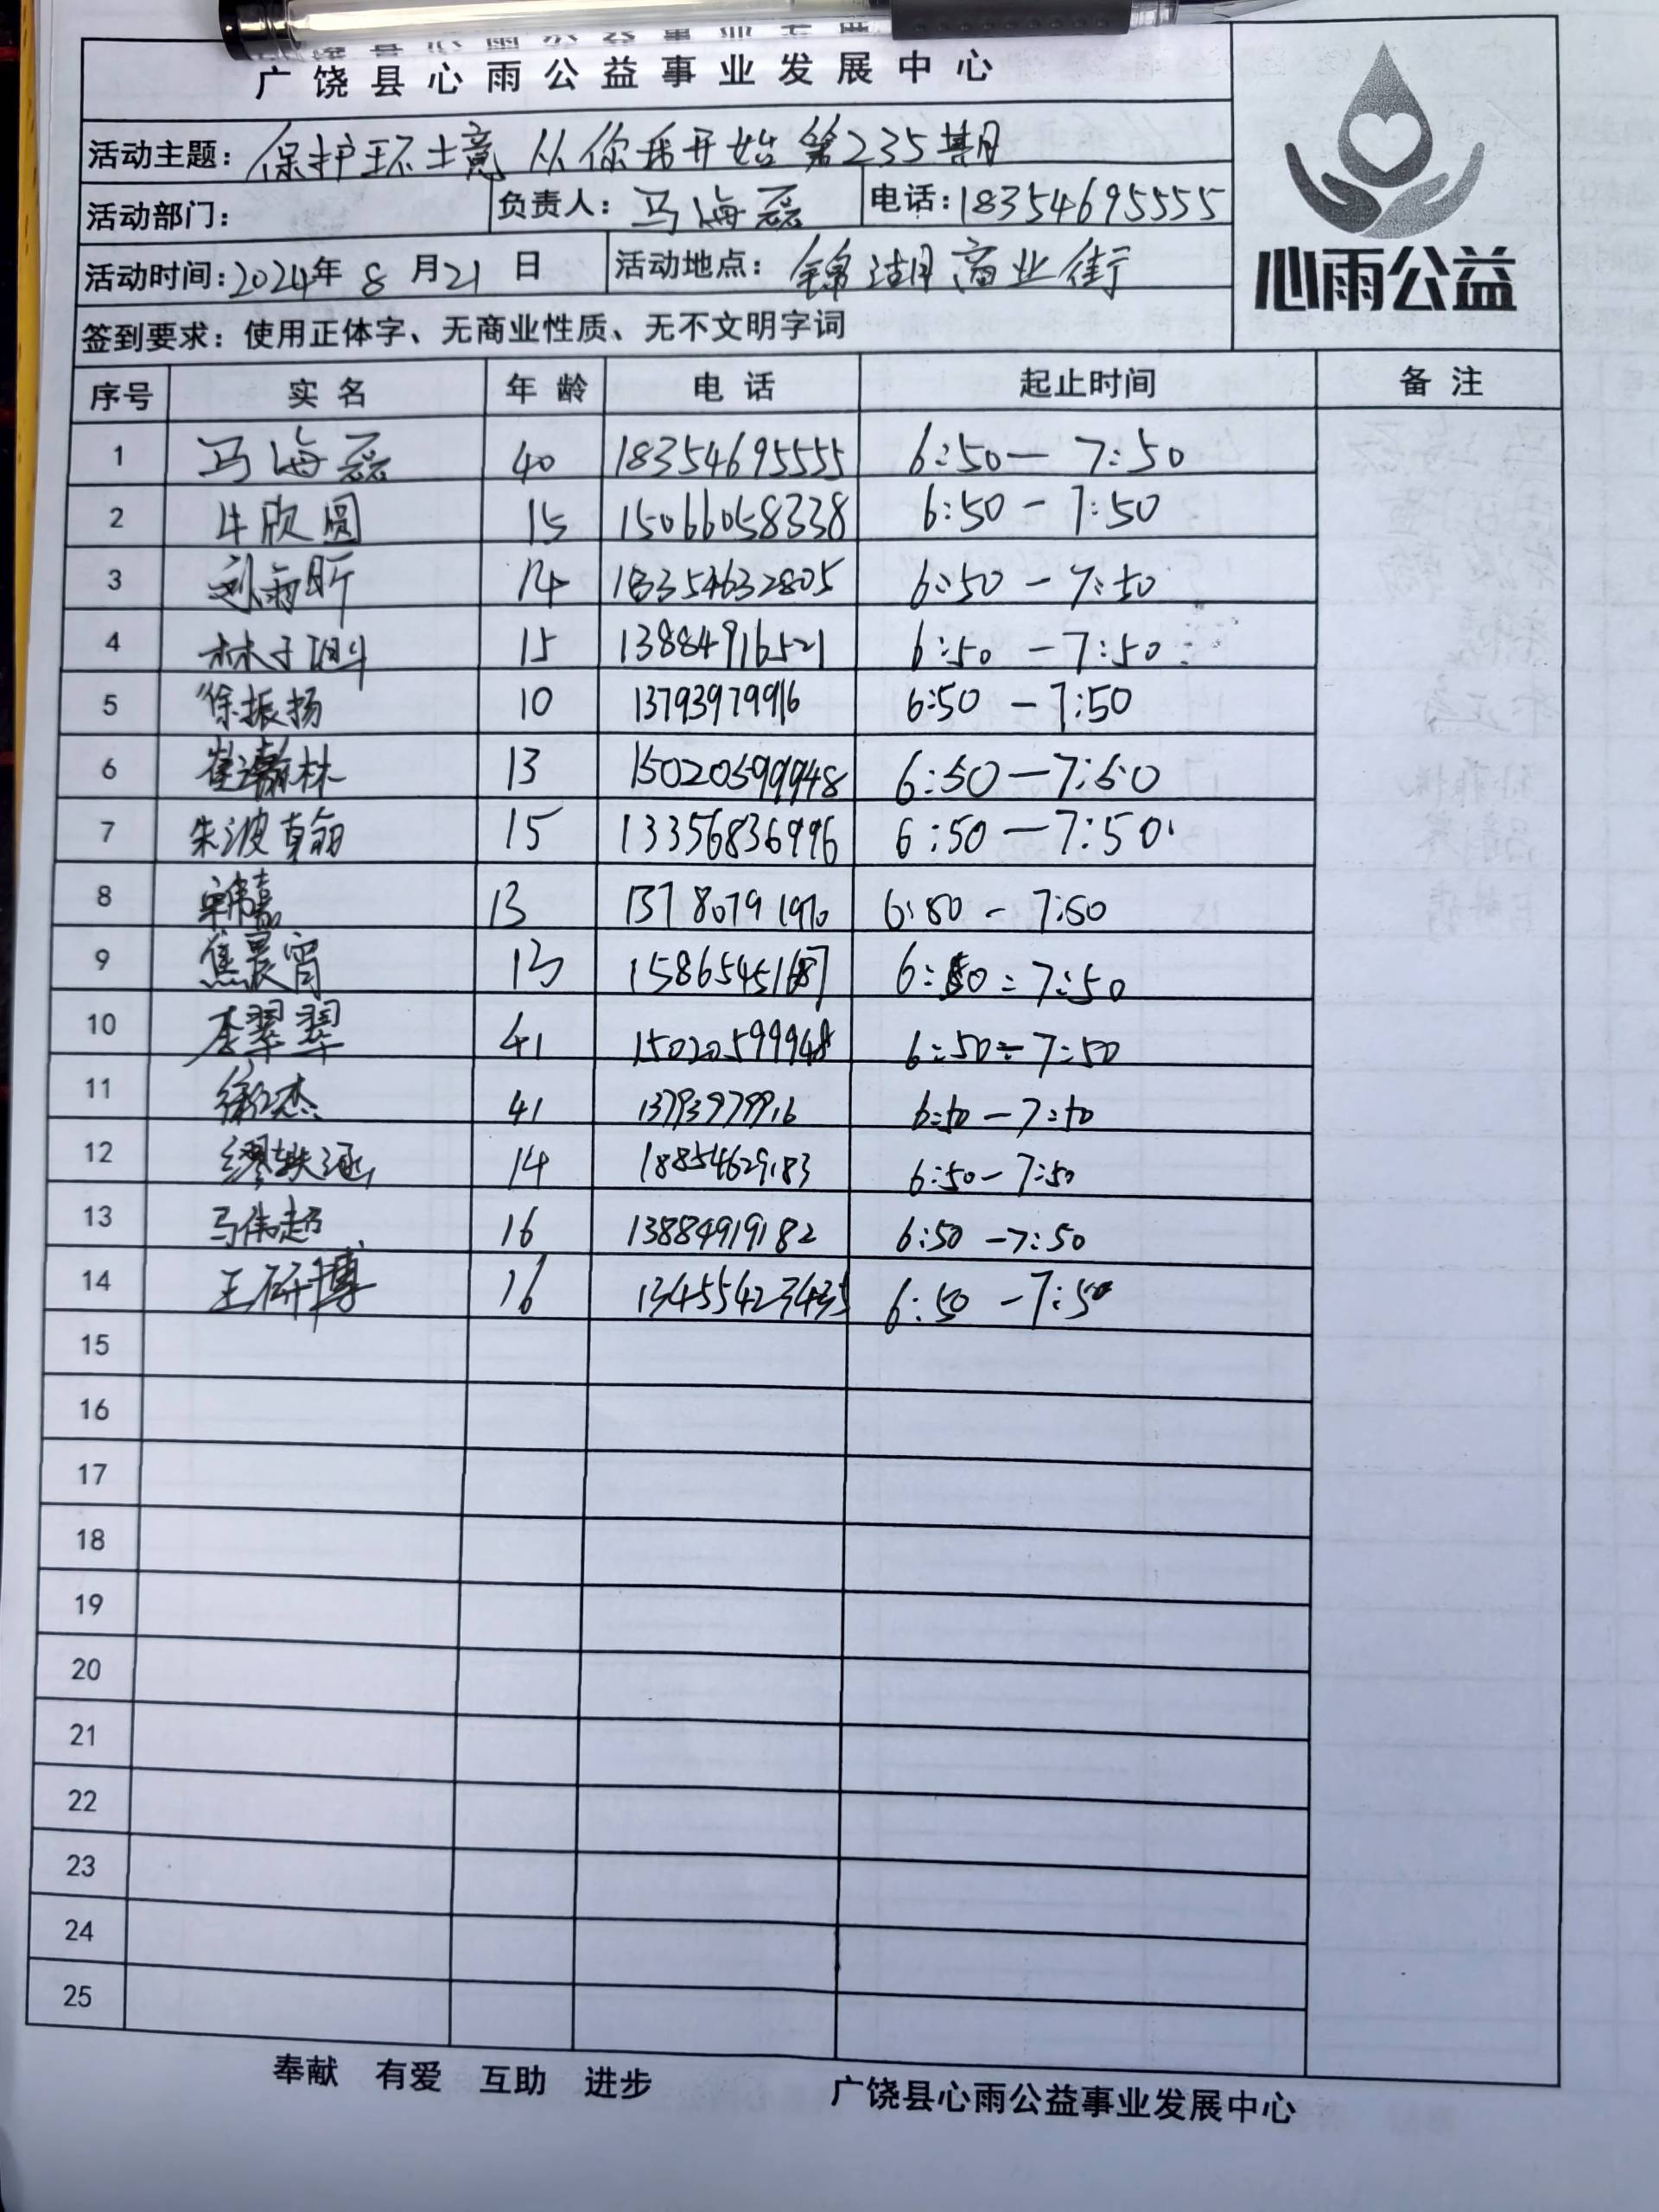 广饶县心雨公益事业发展中心
活动主题：保护环境 从你我开始 第235期
活动部门： 负责人：马海磊 电话：18354695555
活动时间：2024年 8 月21 日 活动地点：锦湖商业街
心雨公益
签到要求：使用正体字、无商业性质、无不文明字词
序号 实名 年龄 电话 起止时间 备注
1 马海磊 40 18354695555 6:50—7:50
2 牛欣圆 15 15066058338 6:50-7:50
3 刘雨昕 14 18354632805 6:50-7:50
4 林子 15 13884916521 6:50-7:50
5 徐振扬 10 13793979916 6:50-7:50
6 崔瀚林 13 15020599948 6:50—7:50
7 朱波 15 13356836996 6:50—7:50
8 13 6:50-7:50
9 焦晨宵 13 6:50-7:50
10 李翠翠 41 15020599948 6:50-7:50
11 徐仁杰 41 13793979916 6:50-7:50
12 缪轶涵 14 18854629183 6:50-7:50
13 马伟超 16 13884919182 6:50-7:50
14 王研博 16 6:50-7:50
15
16
17
18
19
20
21
22
23
24
25
奉献 有爱 互助 进步 广饶县心雨公益事业发展中心